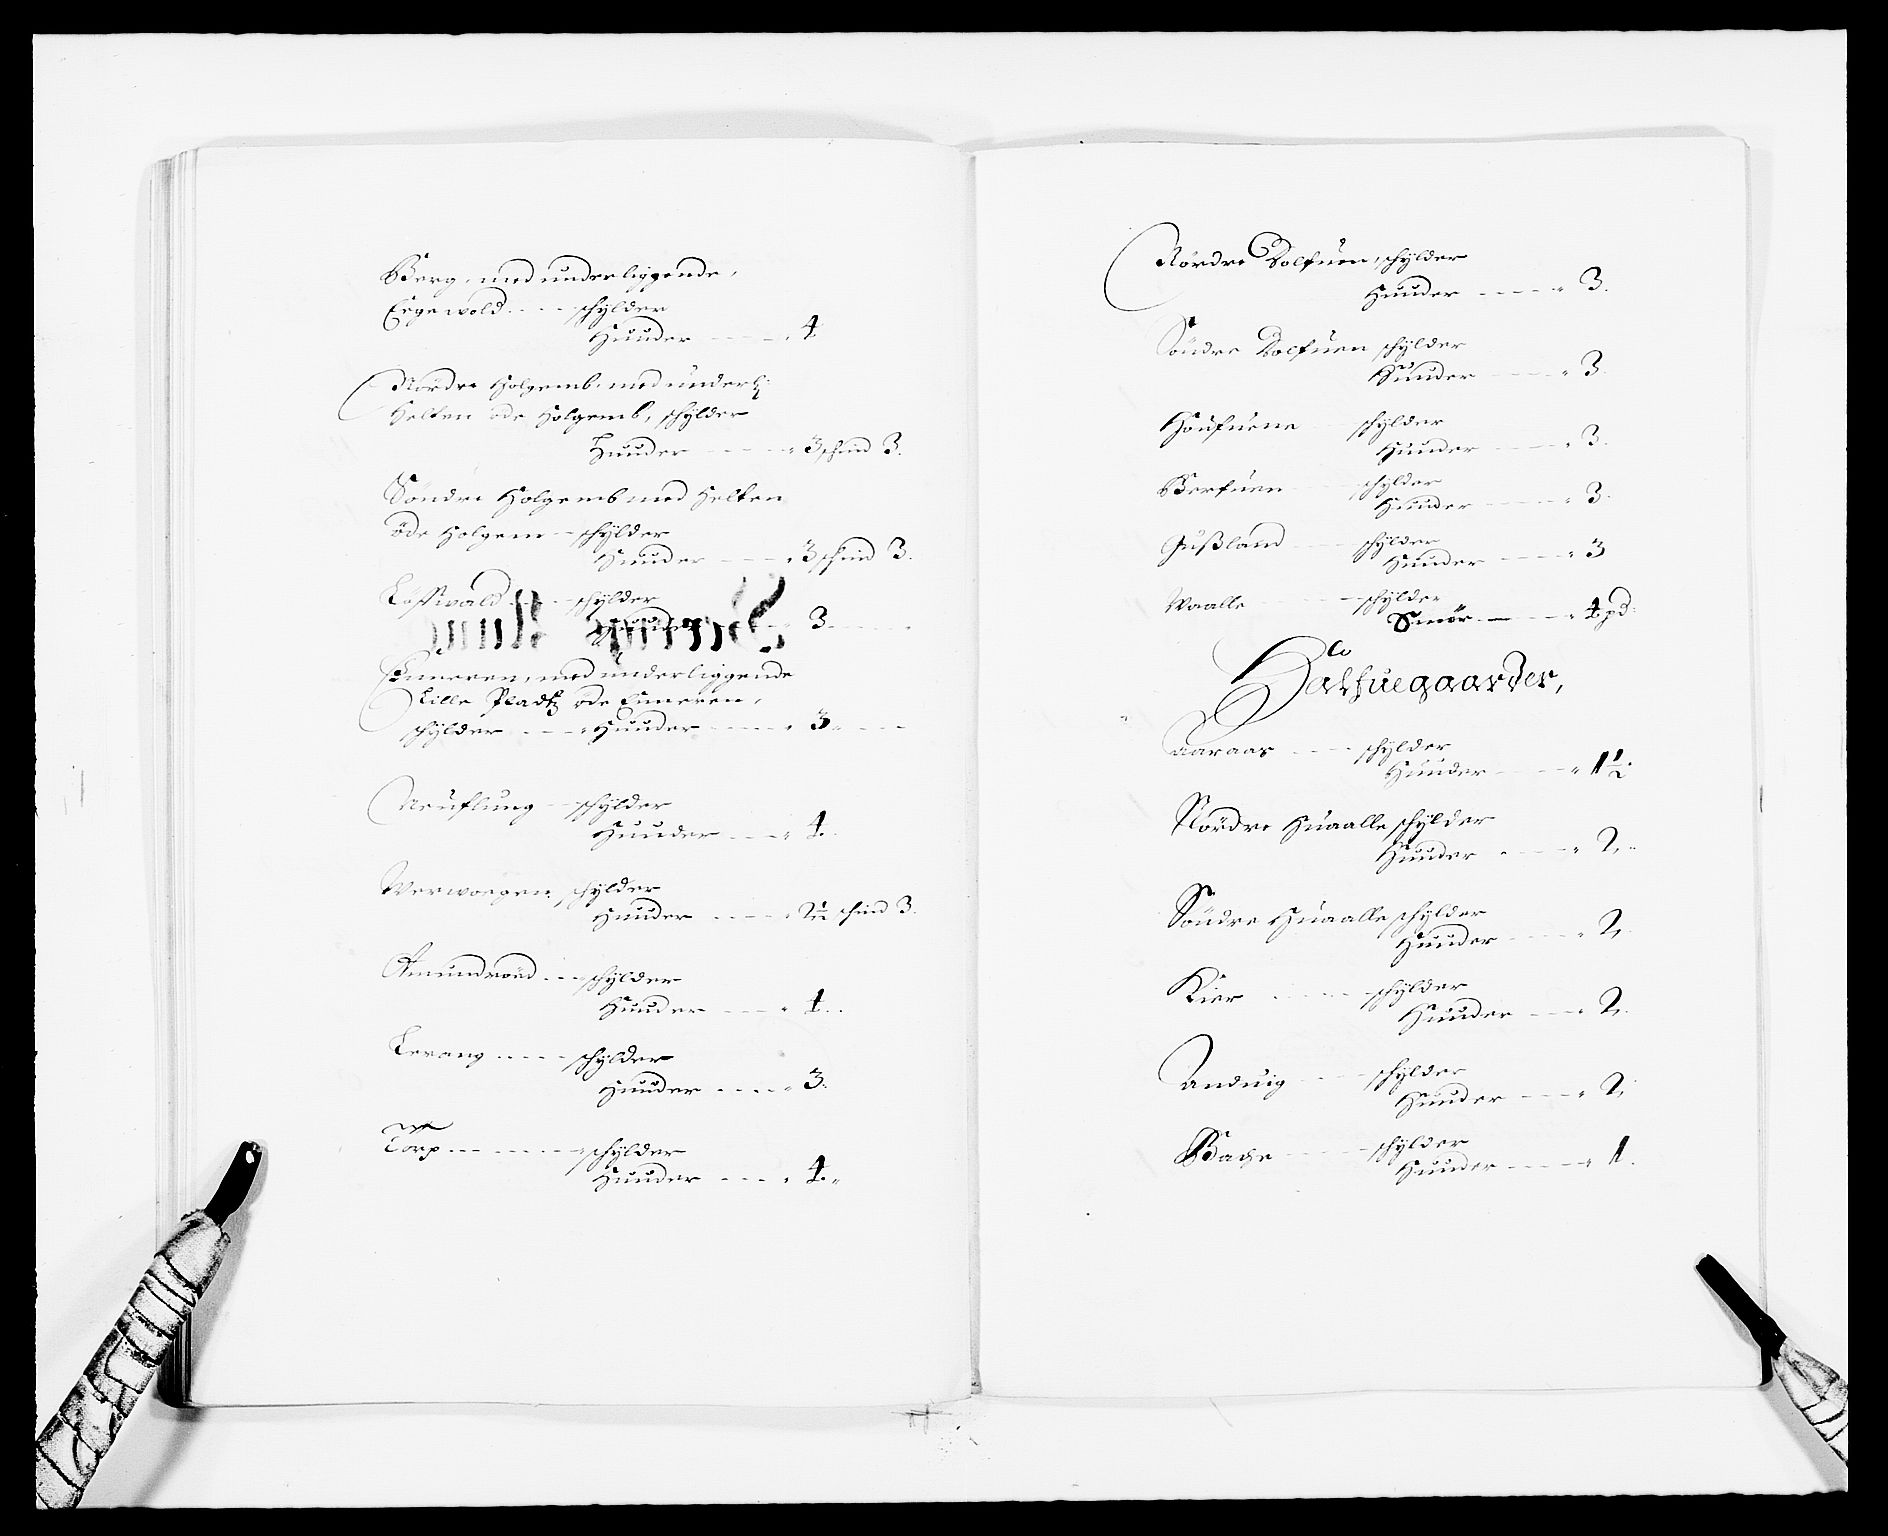 Berg, med underliggende,
Eigewold .... schylder
Huuder ---- 4
Nordre Holgemb, med underl:
Helten öde Holgemb, schylder
Huuder ---- 3 schind 3.
Söndre Holgemb med Helten
öde Holgem -- schylder
Huuder ---- 3 schind 3.
Löffwald ---- schylder
Huuder ---- 3
Emmeren, med underliggende
Lille Pladtz öde Emmeren,
schylder ---- Huuder ---- 3
Neuflung -- schylder
Huuder ---- 4.
Werwoegen, schylder
Huuder ---- 2½ schind 3.
Amundroed ... schylder
Huuder ---- 4.
Levang ..... schylder
Huuder ---- 3.
Torp ---- schylder
Huuder ---- 4.
Nördre Dolfuen, schylder
Huuder ---- 3.
Söndre Dolfuen schylder
Huuder ---- 3.
Houfuene schylder
Huuder ---- 3.
Berfuen schylder
Huuder ---- 3.
Gußland ---- schylder
Huuder ---- 3
Waalle ---- schylder
Smör ---- 4 pd:
Halfuegaarder,
Aaraas ---- schylder
Huuder ---- 1½
Nördre Huaalle schylder
Huuder ---- 2.
Söndre Huaalle schylder
Huuder ---- 2.
Kier ---- schylder
Huuder ---- 2.
Anduig ---- schylder
Huuder ---- 2.
Bache ---- schylder
Huuder ---- 1.